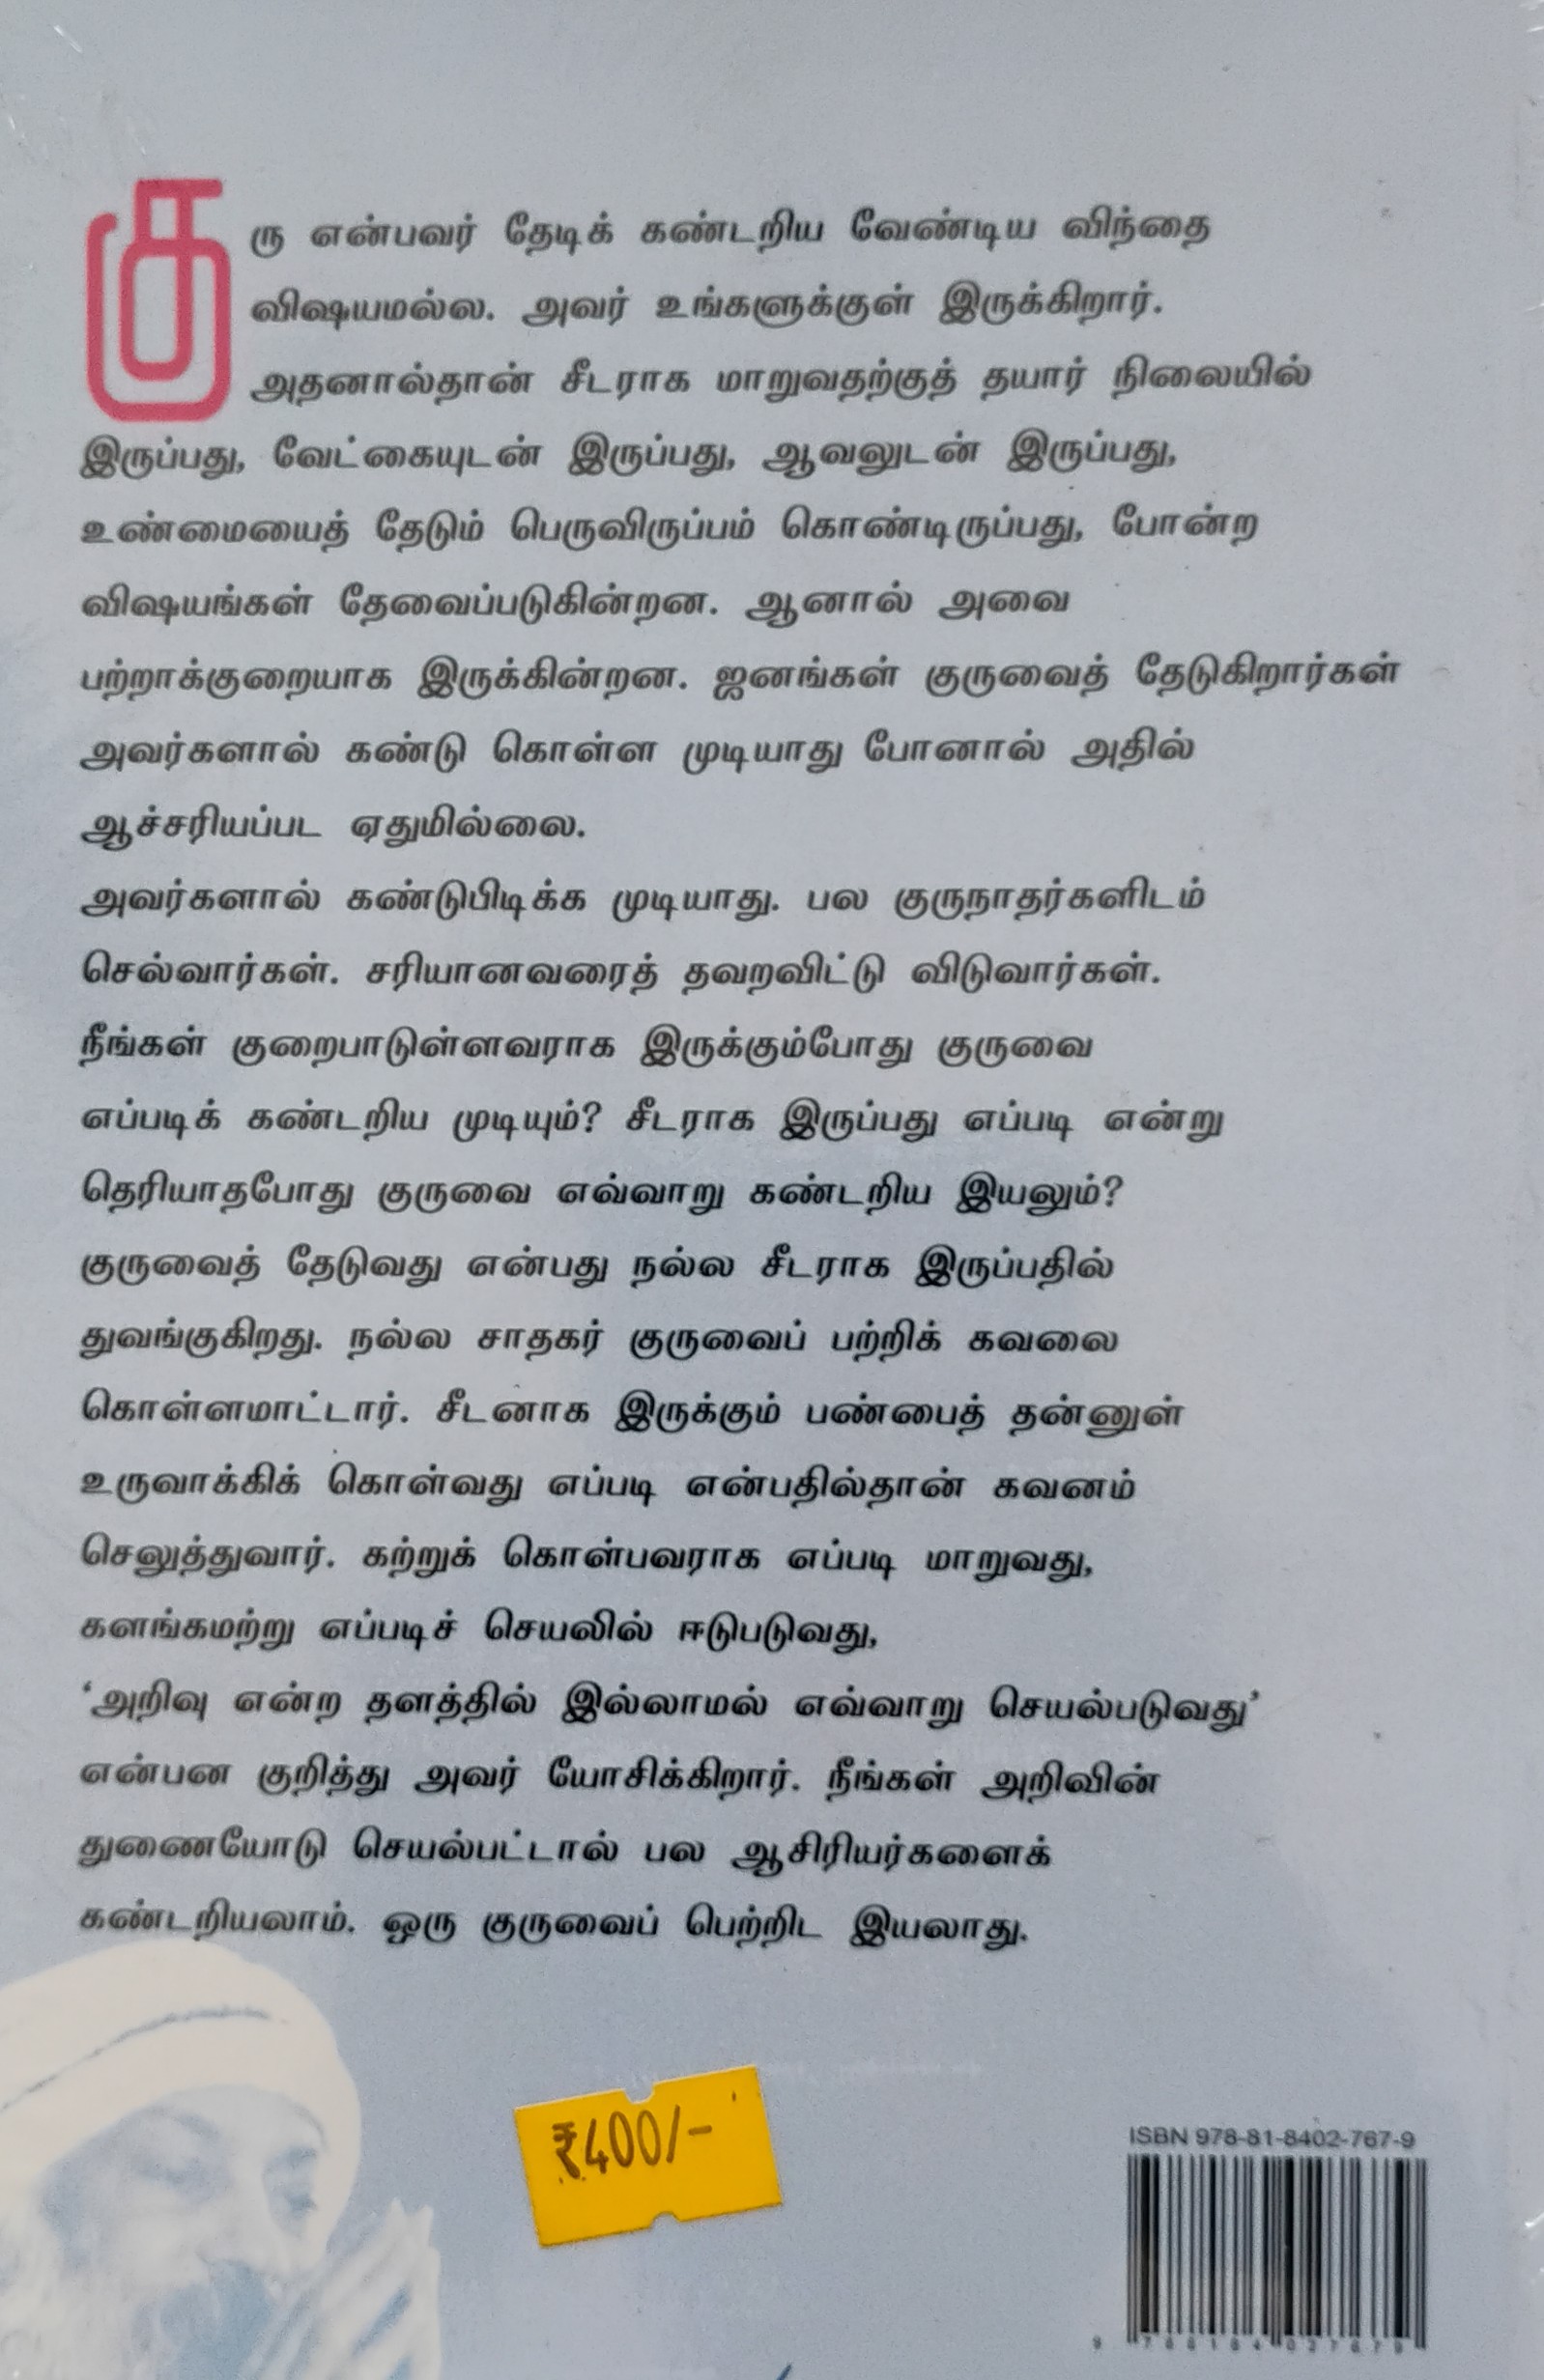 குரு என்பவர் தேடிக் கண்டறிய வேண்டிய விந்தை
விஷயமல்ல. அவர் உங்களுக்குள் இருக்கிறார்.
அதனால்தான் சீடராக மாறுவதற்குத் தயார் நிலையில்
இருப்பது, வேட்கையுடன் இருப்பது, ஆவலுடன் இருப்பது,
உண்மையைத் தேடும் பெருவிருப்பம் கொண்டிருப்பது, போன்ற
விஷயங்கள் தேவைப்படுகின்றன. ஆனால் அவை
பற்றாக்குறையாக இருக்கின்றன. ஜனங்கள் குருவைத் தேடுகிறார்கள்
அவர்களால் கண்டு கொள்ள முடியாது போனால் அதில்
ஆச்சரியப்பட ஏதுமில்லை.
அவர்களால் கண்டுபிடிக்க முடியாது. பல குருநாதர்களிடம்
செல்வார்கள். சரியானவரைத் தவறவிட்டு விடுவார்கள்.
நீங்கள் குறைபாடுள்ளவராக இருக்கும்போது குருவை
எப்படிக் கண்டறிய முடியும்? சீடராக இருப்பது எப்படி என்று
தெரியாதபோது குருவை எவ்வாறு கண்டறிய இயலும்?
குருவைத் தேடுவது என்பது நல்ல சீடராக இருப்பதில்
துவங்குகிறது. நல்ல சாதகர் குருவைப் பற்றிக் கவலை
கொள்ளமாட்டார். சீடனாக இருக்கும் பண்பைத் தன்னுள்
உருவாக்கிக் கொள்வது எப்படி என்பதில்தான் கவனம்
செலுத்துவார். கற்றுக் கொள்பவராக எப்படி மாறுவது,
களங்கமற்று எப்படிச் செயலில் ஈடுபடுவது,
‘அறிவு என்ற தளத்தில் இல்லாமல் எவ்வாறு செயல்படுவது’
என்பன குறித்து அவர் யோசிக்கிறார். நீங்கள் அறிவின்
துணையோடு செயல்பட்டால் பல ஆசிரியர்களைக்
கண்டறியலாம். ஒரு குருவைப் பெற்றிட இயலாது.
₹400/-
ISBN 978-81-8402-767-9
9 788184 027679